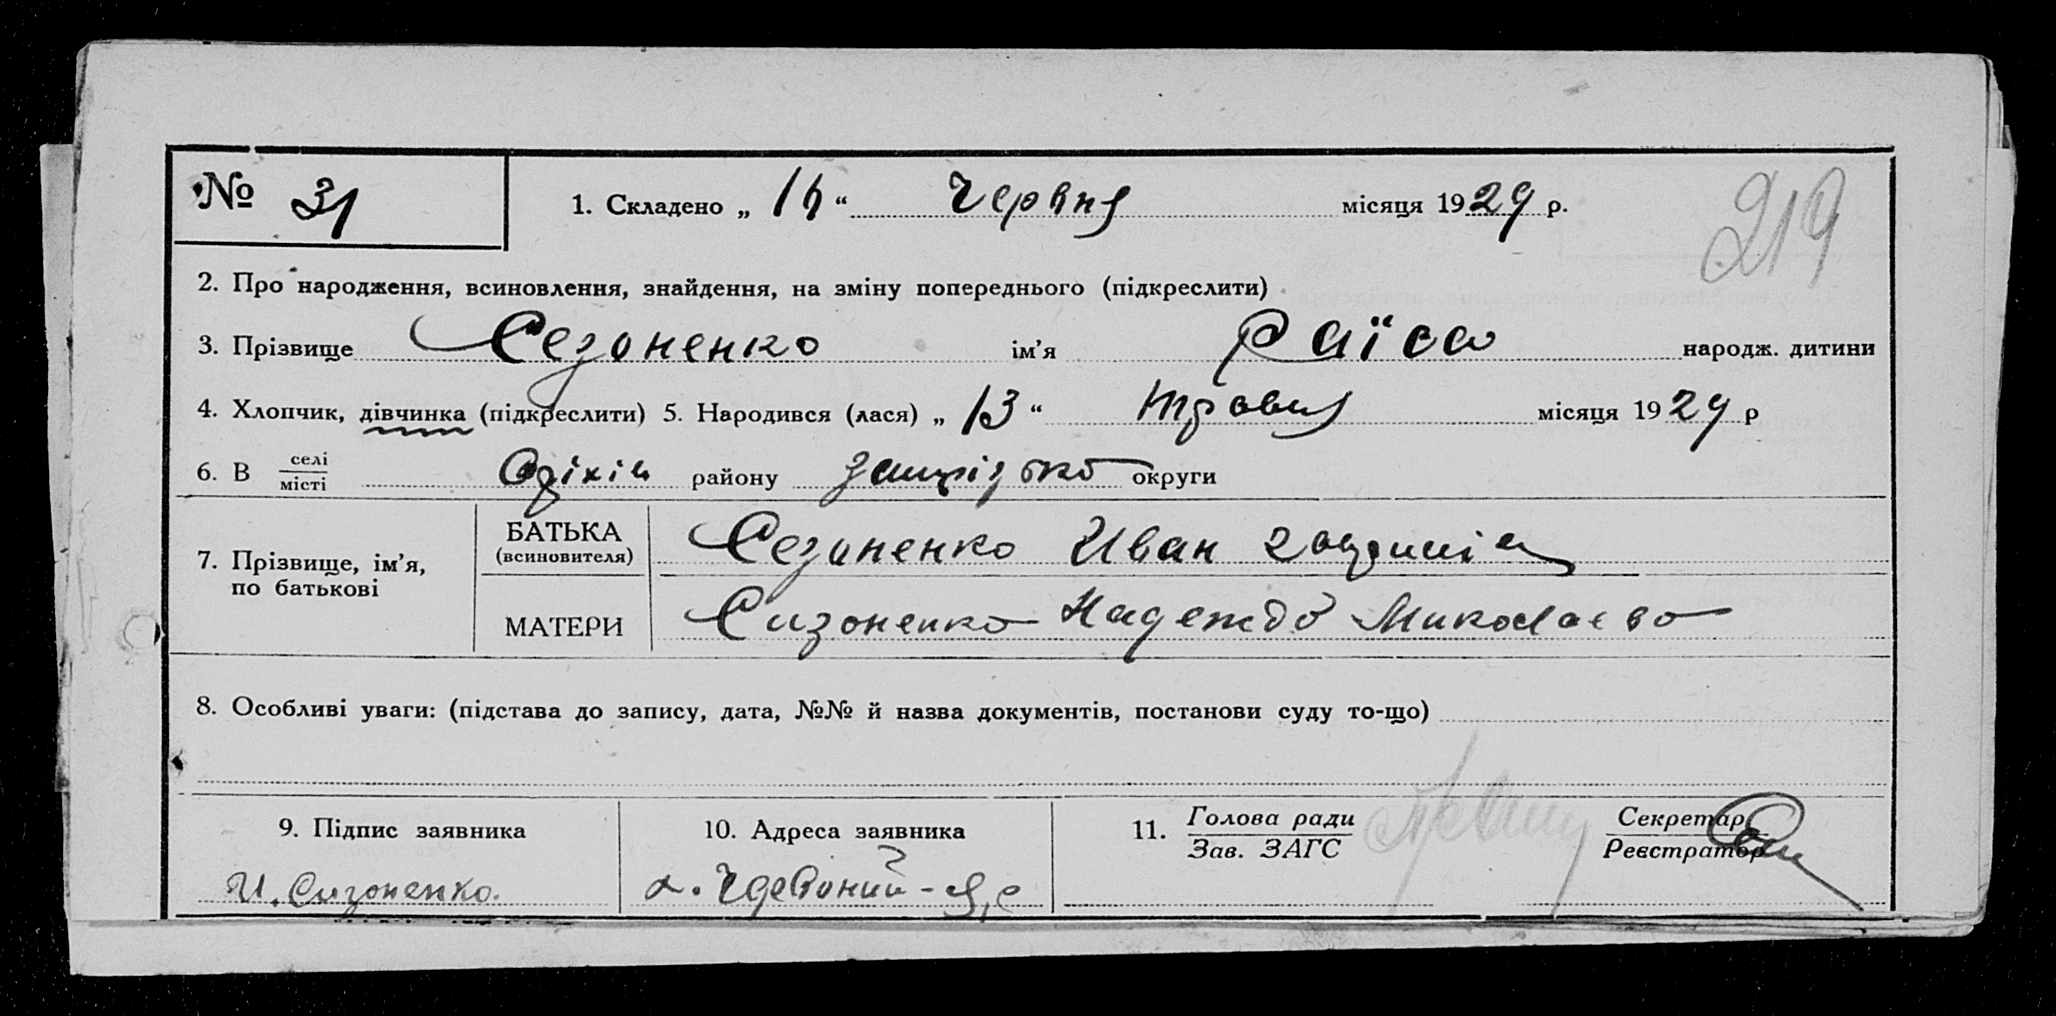 № 31
1. Складено „ 16 “ Червня місяця 1929 р.
219
2. Про народження, всиновлення, знайдення, на зміну попереднього (підкреслити)
3. Прізвище Сезоненко ім’я Раїса народж. дитини
4. Хлопчик, дівчинка (підкреслити) 5. Народився (лася) „ 13 “ травня місяця 1929 р
6. В селі місті Оріхів району округи
7. Прізвище, ім’я, по батькові
БАТЬКА (всиновителя) Сезоненко Иван
МАТЕРИ Сизоненко Надежда Миколаєва
8. Особливі уваги: (підстава до запису, дата, №№ й назва документів, постанови суду то-що)
9. Підпис заявника
И. Сизоненко.
10. Адреса заявника
11. Голова ради Зав. ЗАГС
Секретар Реєстратор